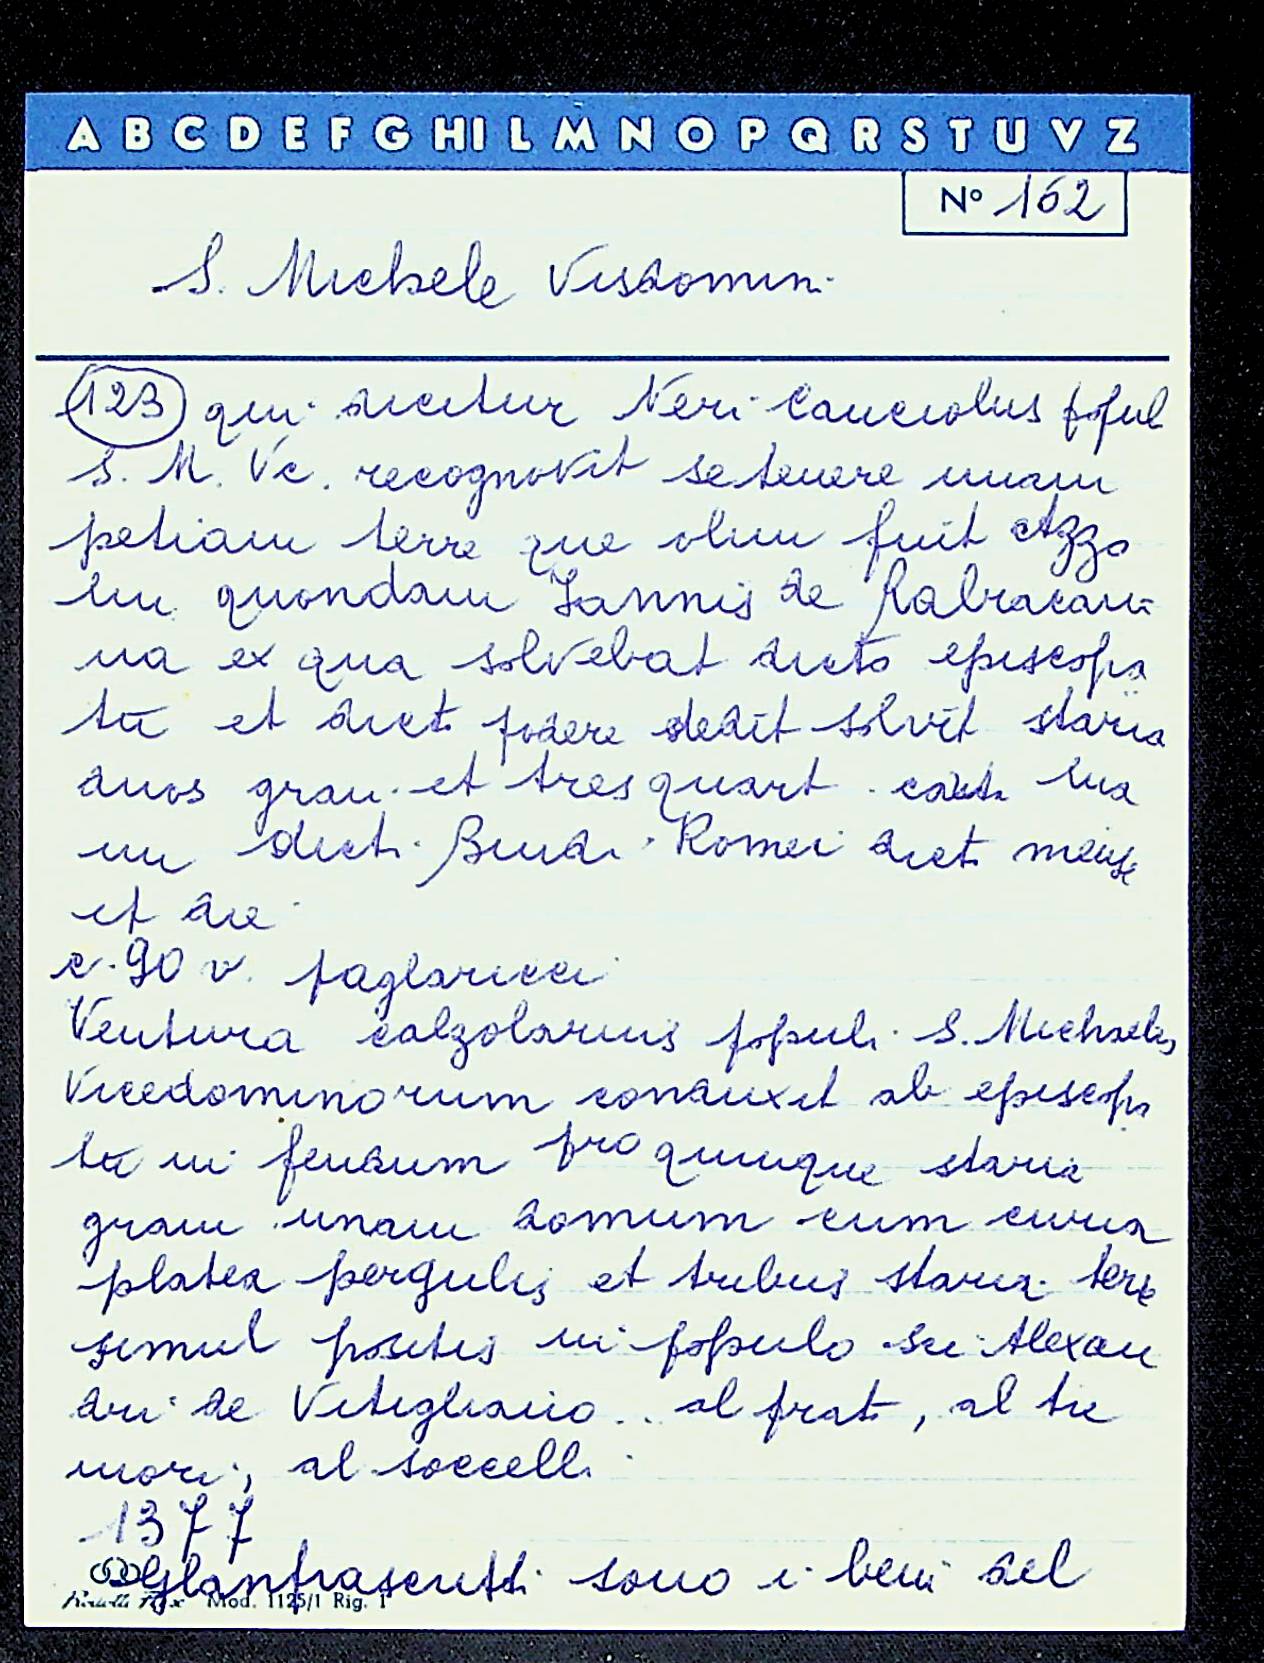 A B C D E F G H I L M N O P Q R S T U V Z
N° 162
S. Michele Visdomin.
123 qui dicitur Neri Cauciolus popul
S. M. Vc. recognovit se tenere unam
petiam terre que olim fuit Azzo
lin quondam Iannis de
na ex qua solvebat dicto episcopa
tu et dict podere dedit solvit staria
duos gran. et tres quart.
un dicti Romei dict mense
et die
c. 90 v. paglaricci
Ventura calzolarius populi S. Michaelis
Vicedominorum conduxit ab episcopa
tu in feudum pro quinque staria
grani unam domum cum curia
platea pergulis et tribus staria terre
simul positis in populo sci Alexan
dri de Vitigliano.. al prato, al tre
mori, al soccelli
1377
Glanfrascritti sono i beni del
Mod. 1125/1 Rig. 1